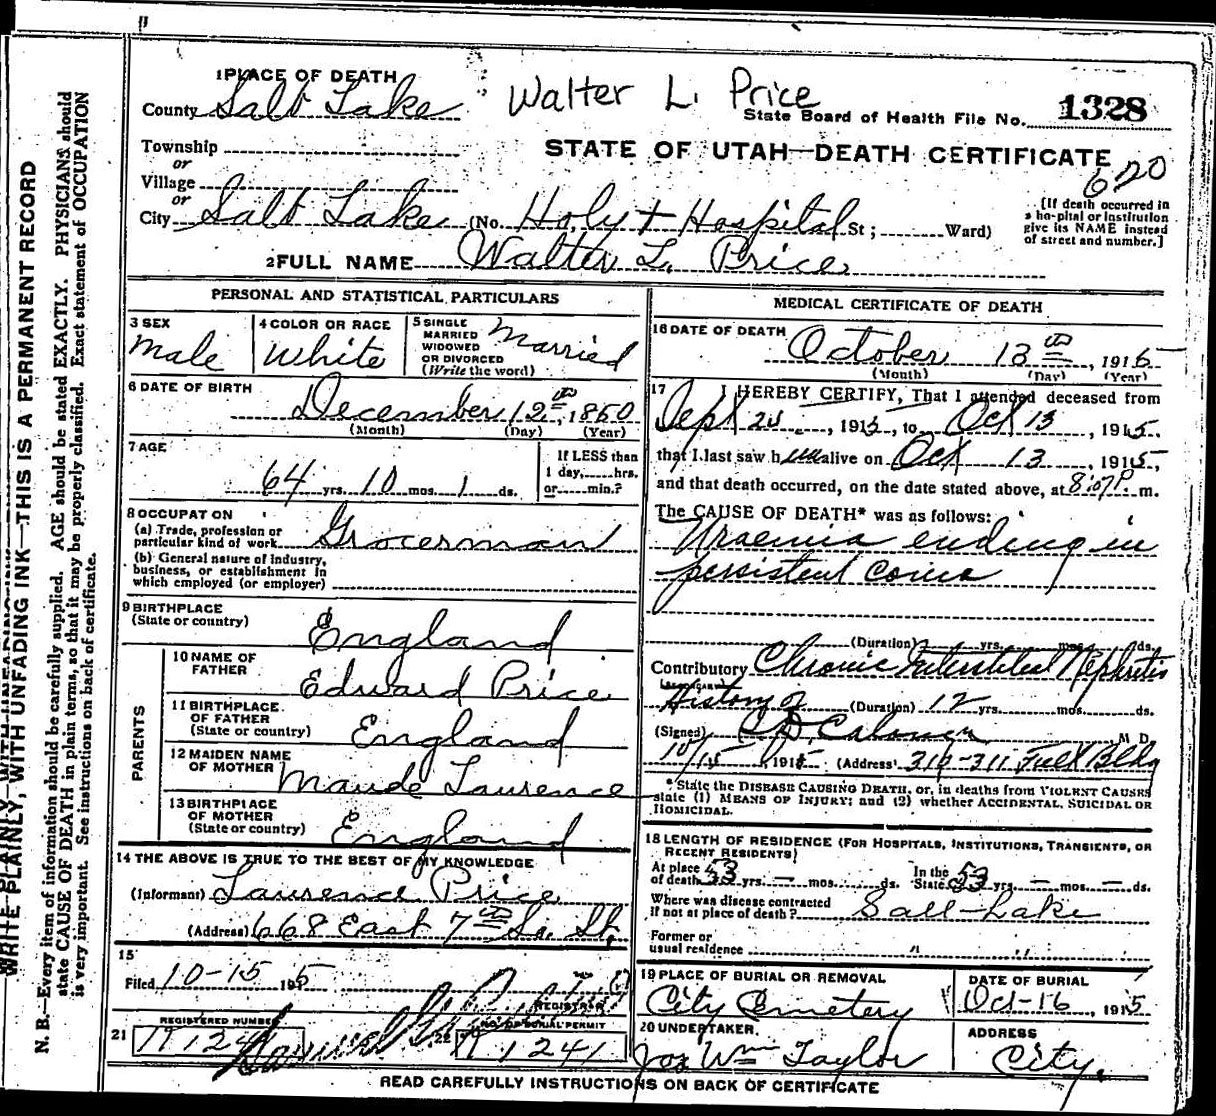 WRITE PLAINLY, WITH UNFADING INK—THIS IS A PERMANENT RECORD
N. B.—Every item of information should be carefully supplied. AGE should be stated EXACTLY. PHYSICIANS should
state CAUSE OF DEATH in plain terms, so that it may be properly classified. Exact statement of OCCUPATION
is very important. See instructions on back of certificate.
1 PLACE OF DEATH
Walter L. Price
County Salt Lake
State Board of Health File No. 1328
Township
STATE OF UTAH—DEATH CERTIFICATE
or
Village
620
or
City Salt Lake (No. Holy + Hospital St; Ward)
[If death occurred in
a hospital or institution
give its NAME instead
of street and number.]
2 FULL NAME Walter L. Price
PERSONAL AND STATISTICAL PARTICULARS
3 SEX
Male
4 COLOR OR RACE
White
5 SINGLE
MARRIED
WIDOWED
OR DIVORCED
(Write the word)
Married
6 DATE OF BIRTH
December 12th, 1850
(Month) (Day) (Year)
7 AGE
64 yrs. 10 mos. 1 ds.
If LESS than
1 day, hrs.
or min.?
8 OCCUPATION
(a) Trade, profession or
particular kind of work Grocerman
(b) General nature of industry,
business, or establishment in
which employed (or employer)
9 BIRTHPLACE
(State or country) England
PARENTS
10 NAME OF
FATHER Edward Price
11 BIRTHPLACE
OF FATHER
(State or country) England
12 MAIDEN NAME
OF MOTHER Maude Laurence
13 BIRTHPLACE
OF MOTHER
(State or country) England
14 THE ABOVE IS TRUE TO THE BEST OF MY KNOWLEDGE
(Informant) Laurence Price
(Address) 668 East 7th So. St.
15
Filed 10-15 1915
REGISTRAR
REGISTERED NUMBER
21
22 NO. OF BURIAL PERMIT
1241
MEDICAL CERTIFICATE OF DEATH
16 DATE OF DEATH
October 13th, 1915
(Month) (Day) (Year)
17 I HEREBY CERTIFY, That I attended deceased from
Sept 1915, to Oct 13, 1915.
that I last saw him alive on Oct 13, 1915,
and that death occurred, on the date stated above, at 8:07 P. m.
The CAUSE OF DEATH* was as follows:
Uraemia ending in
persistent coma
(Duration) yrs. mos. ds.
Contributory Chronic Interstitial Nephritis
History of (Duration) 12 yrs. mos. ds.
(Signed) M. D.
10/15 1915 (Address) Bldg
*State the DISEASE CAUSING DEATH, or, in deaths from VIOLENT CAUSES
state (1) MEANS OF INJURY; and (2) whether ACCIDENTAL, SUICIDAL OR
HOMICIDAL.
18 LENGTH OF RESIDENCE (FOR HOSPITALS, INSTITUTIONS, TRANSIENTS, OR
RECENT RESIDENTS)
At place
of death 53 yrs. — mos. ds.
In the
State 53 yrs. — mos. — ds.
Where was disease contracted
if not at place of death? Salt Lake
Former or
usual residence
19 PLACE OF BURIAL OR REMOVAL
City Cemetery
DATE OF BURIAL
Oct-16, 1915
20 UNDERTAKER
Jos Wm Taylor
ADDRESS
City.
READ CAREFULLY INSTRUCTIONS ON BACK OF CERTIFICATE